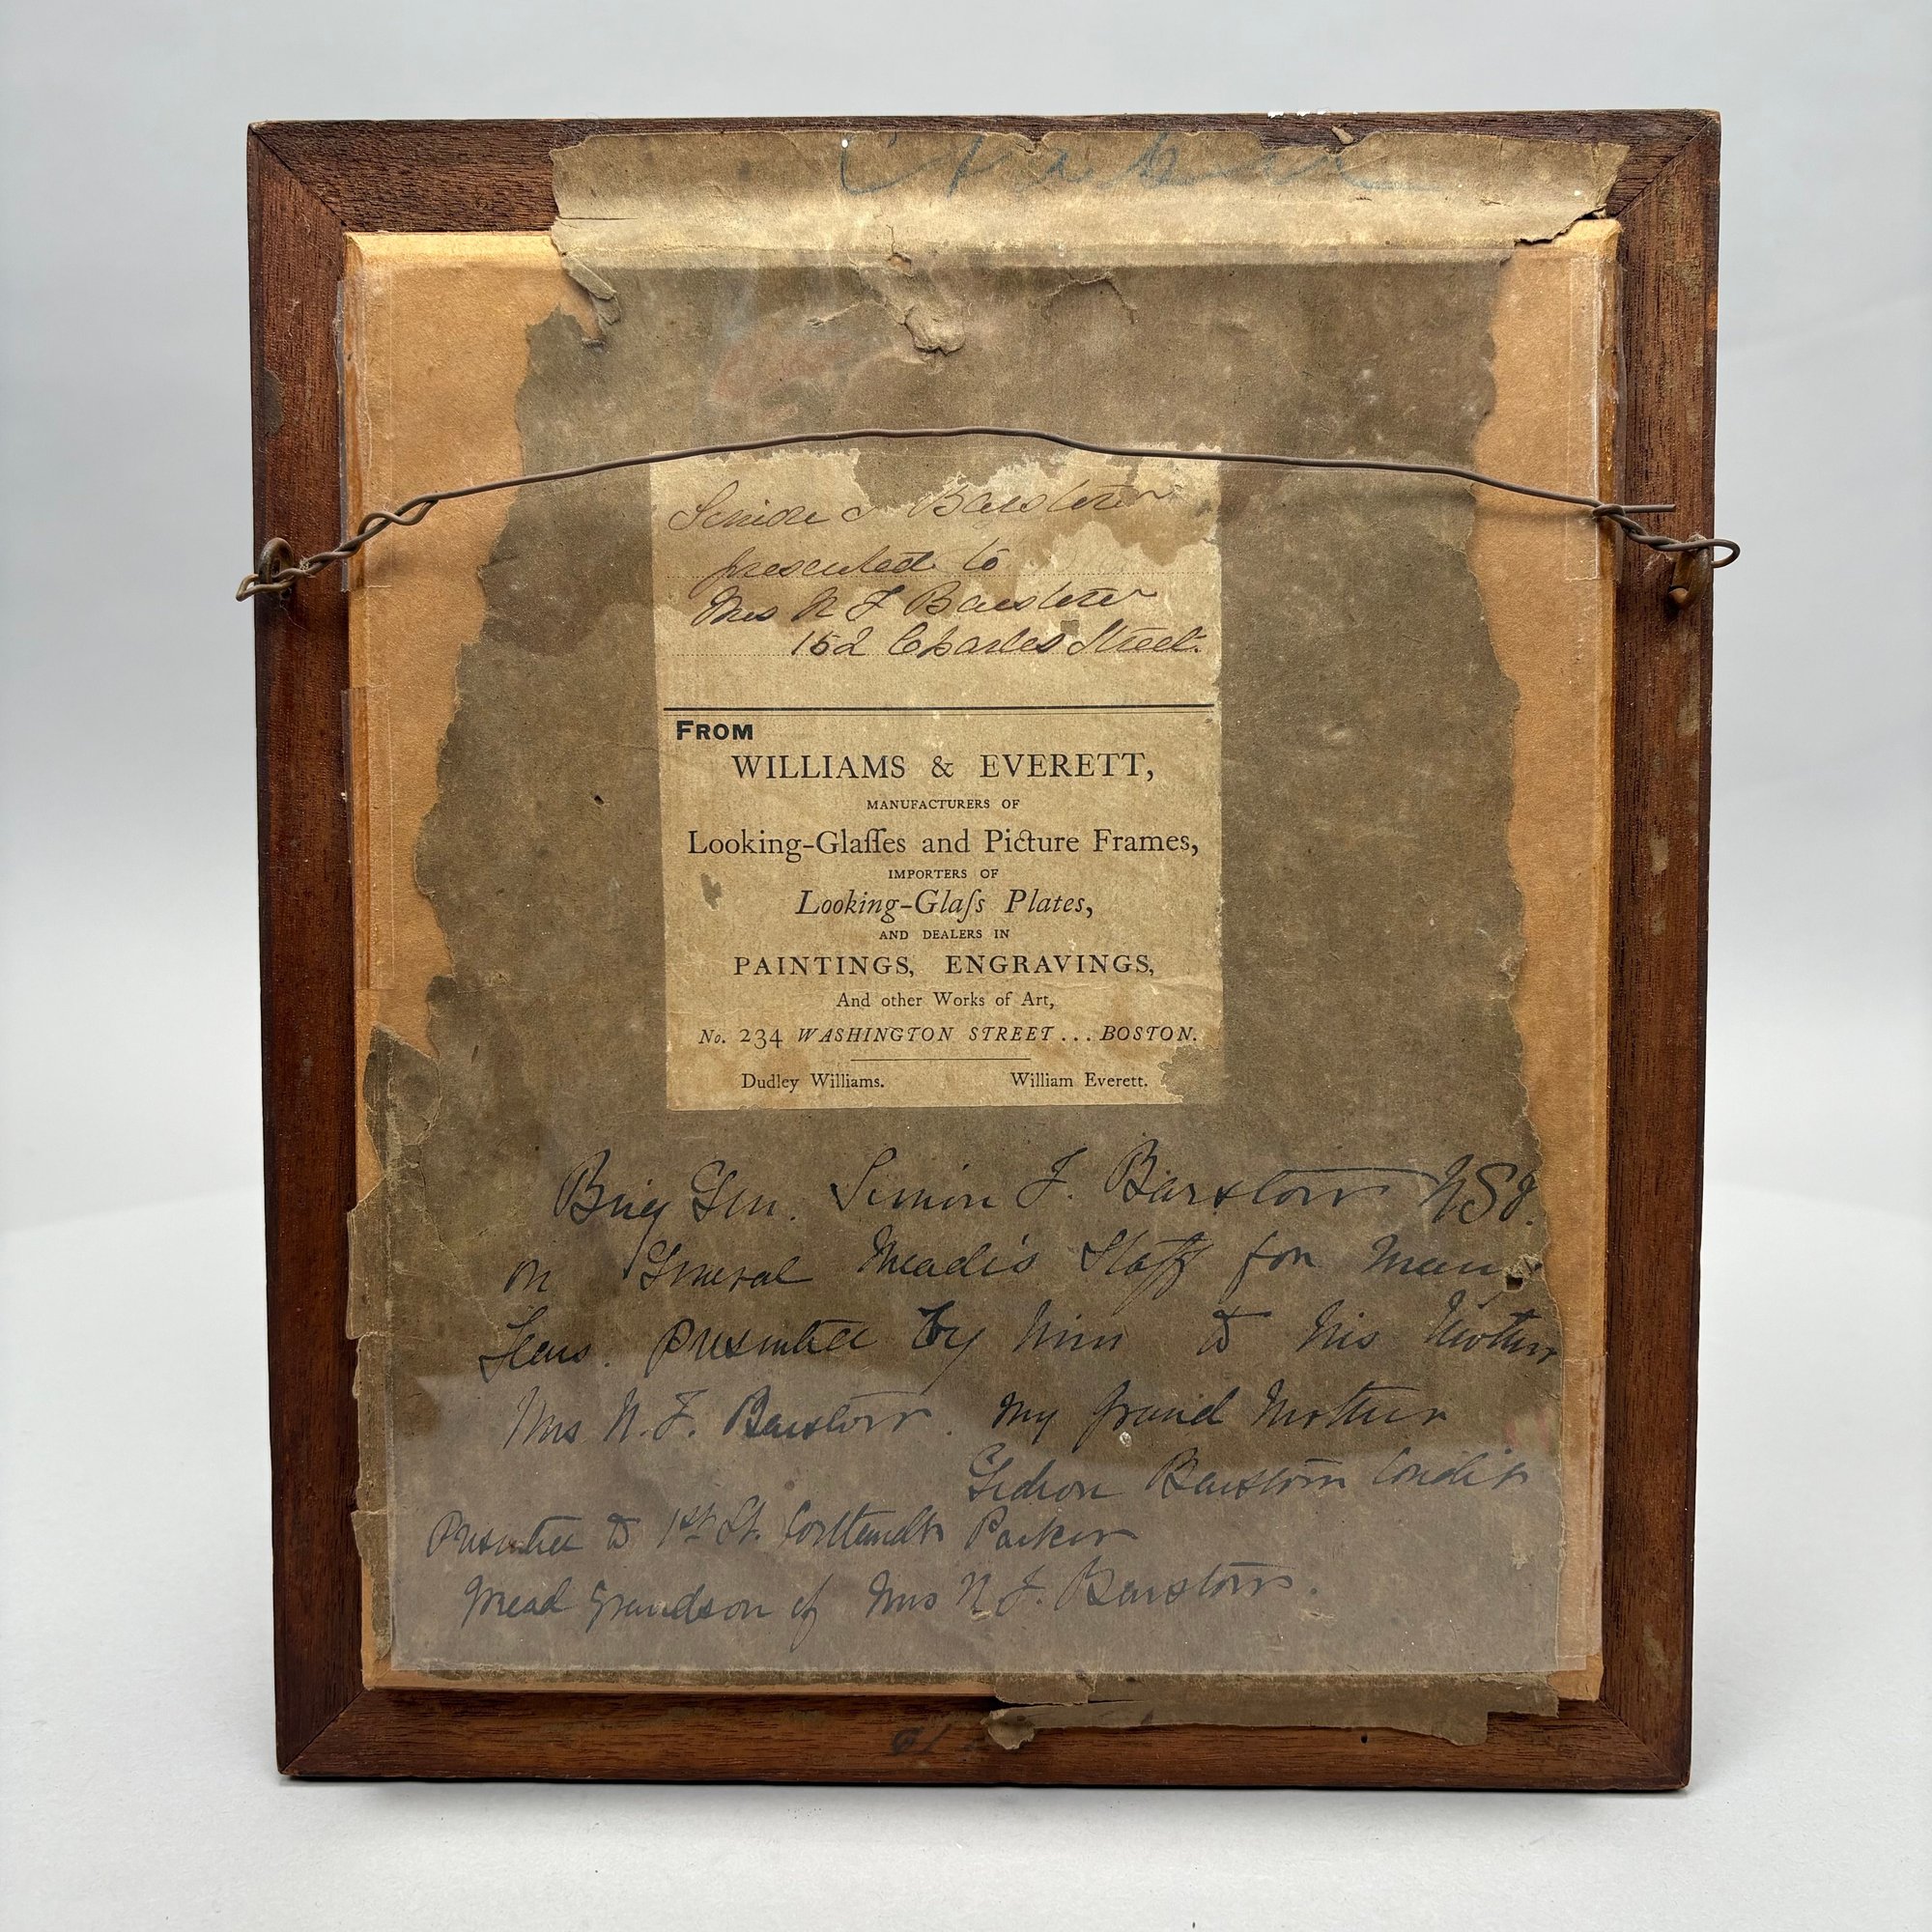 Simon F Barstow
presented to
Mrs N F Barstow
152 Charles Street.
FROM
WILLIAMS & EVERETT,
MANUFACTURERS OF
Looking-Glaſſes and Picture Frames,
IMPORTERS OF
Looking-Glaſs Plates,
AND DEALERS IN
PAINTINGS, ENGRAVINGS,
And other Works of Art,
No. 234 WASHINGTON STREET... BOSTON.
Dudley Williams. William Everett.
Brig Gen. Simon F. Barstow
on General Meade's Staff for many
Years. Presented by him to his Mother
Mrs N. F. Barstow. My Grand Mother
Gideon Barstow Condit
Presented to 1st Lt. Cortlandt Parker
Great Grandson of Mrs N F. Barstow.